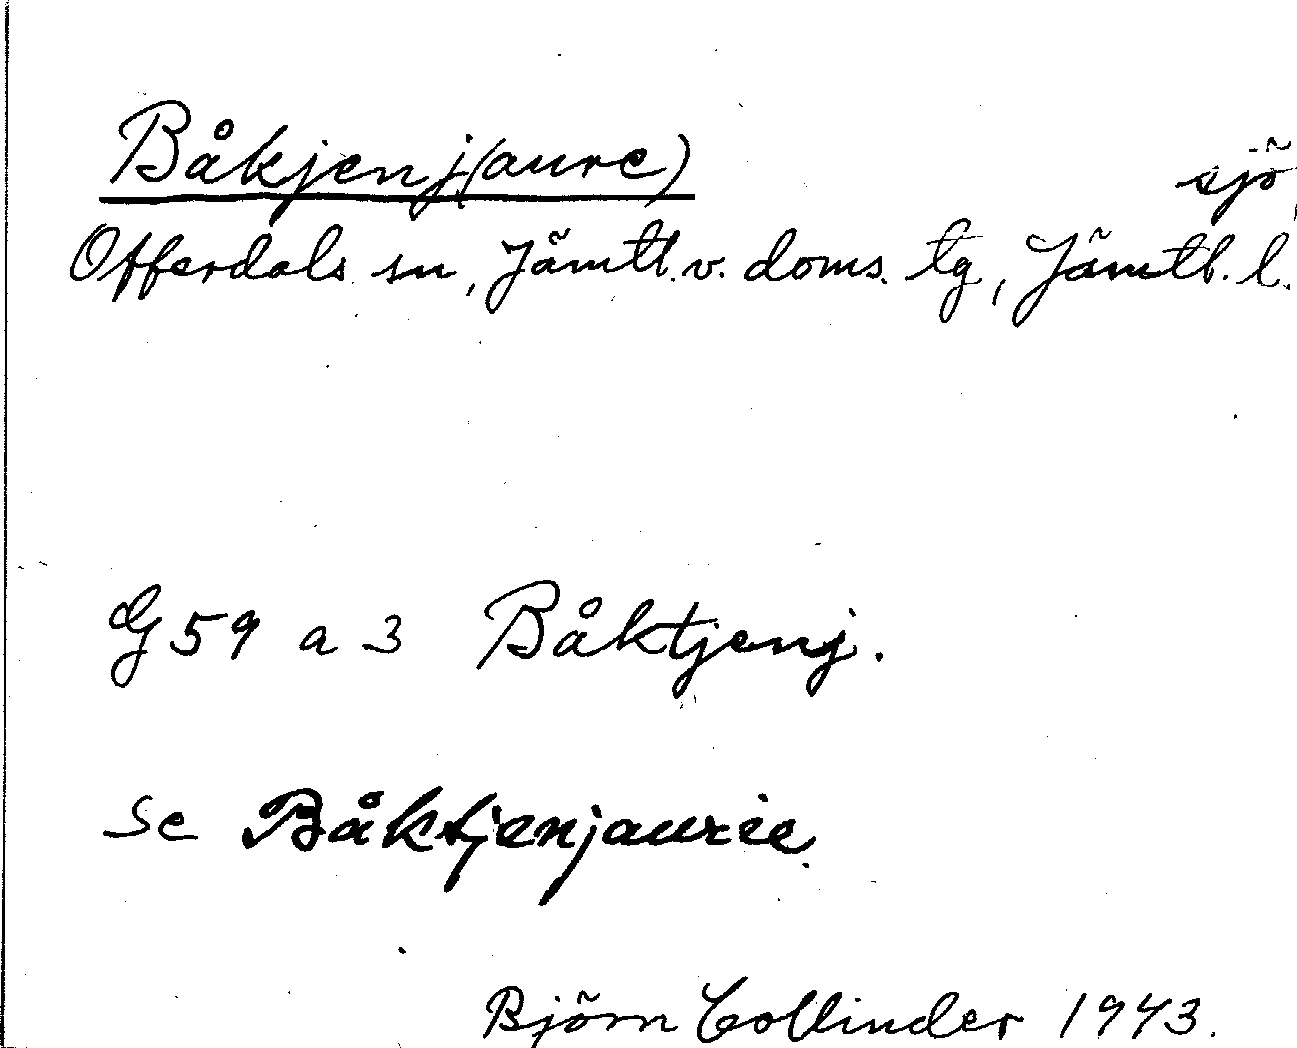 Båkjenj(aure) sjö
Offerdals sn, Jämtl. v. doms. tg, Jämtl. l.
G 59 a 3 Båktjenj.
Se Båktjenjaurie
Björn Collinder 1943.